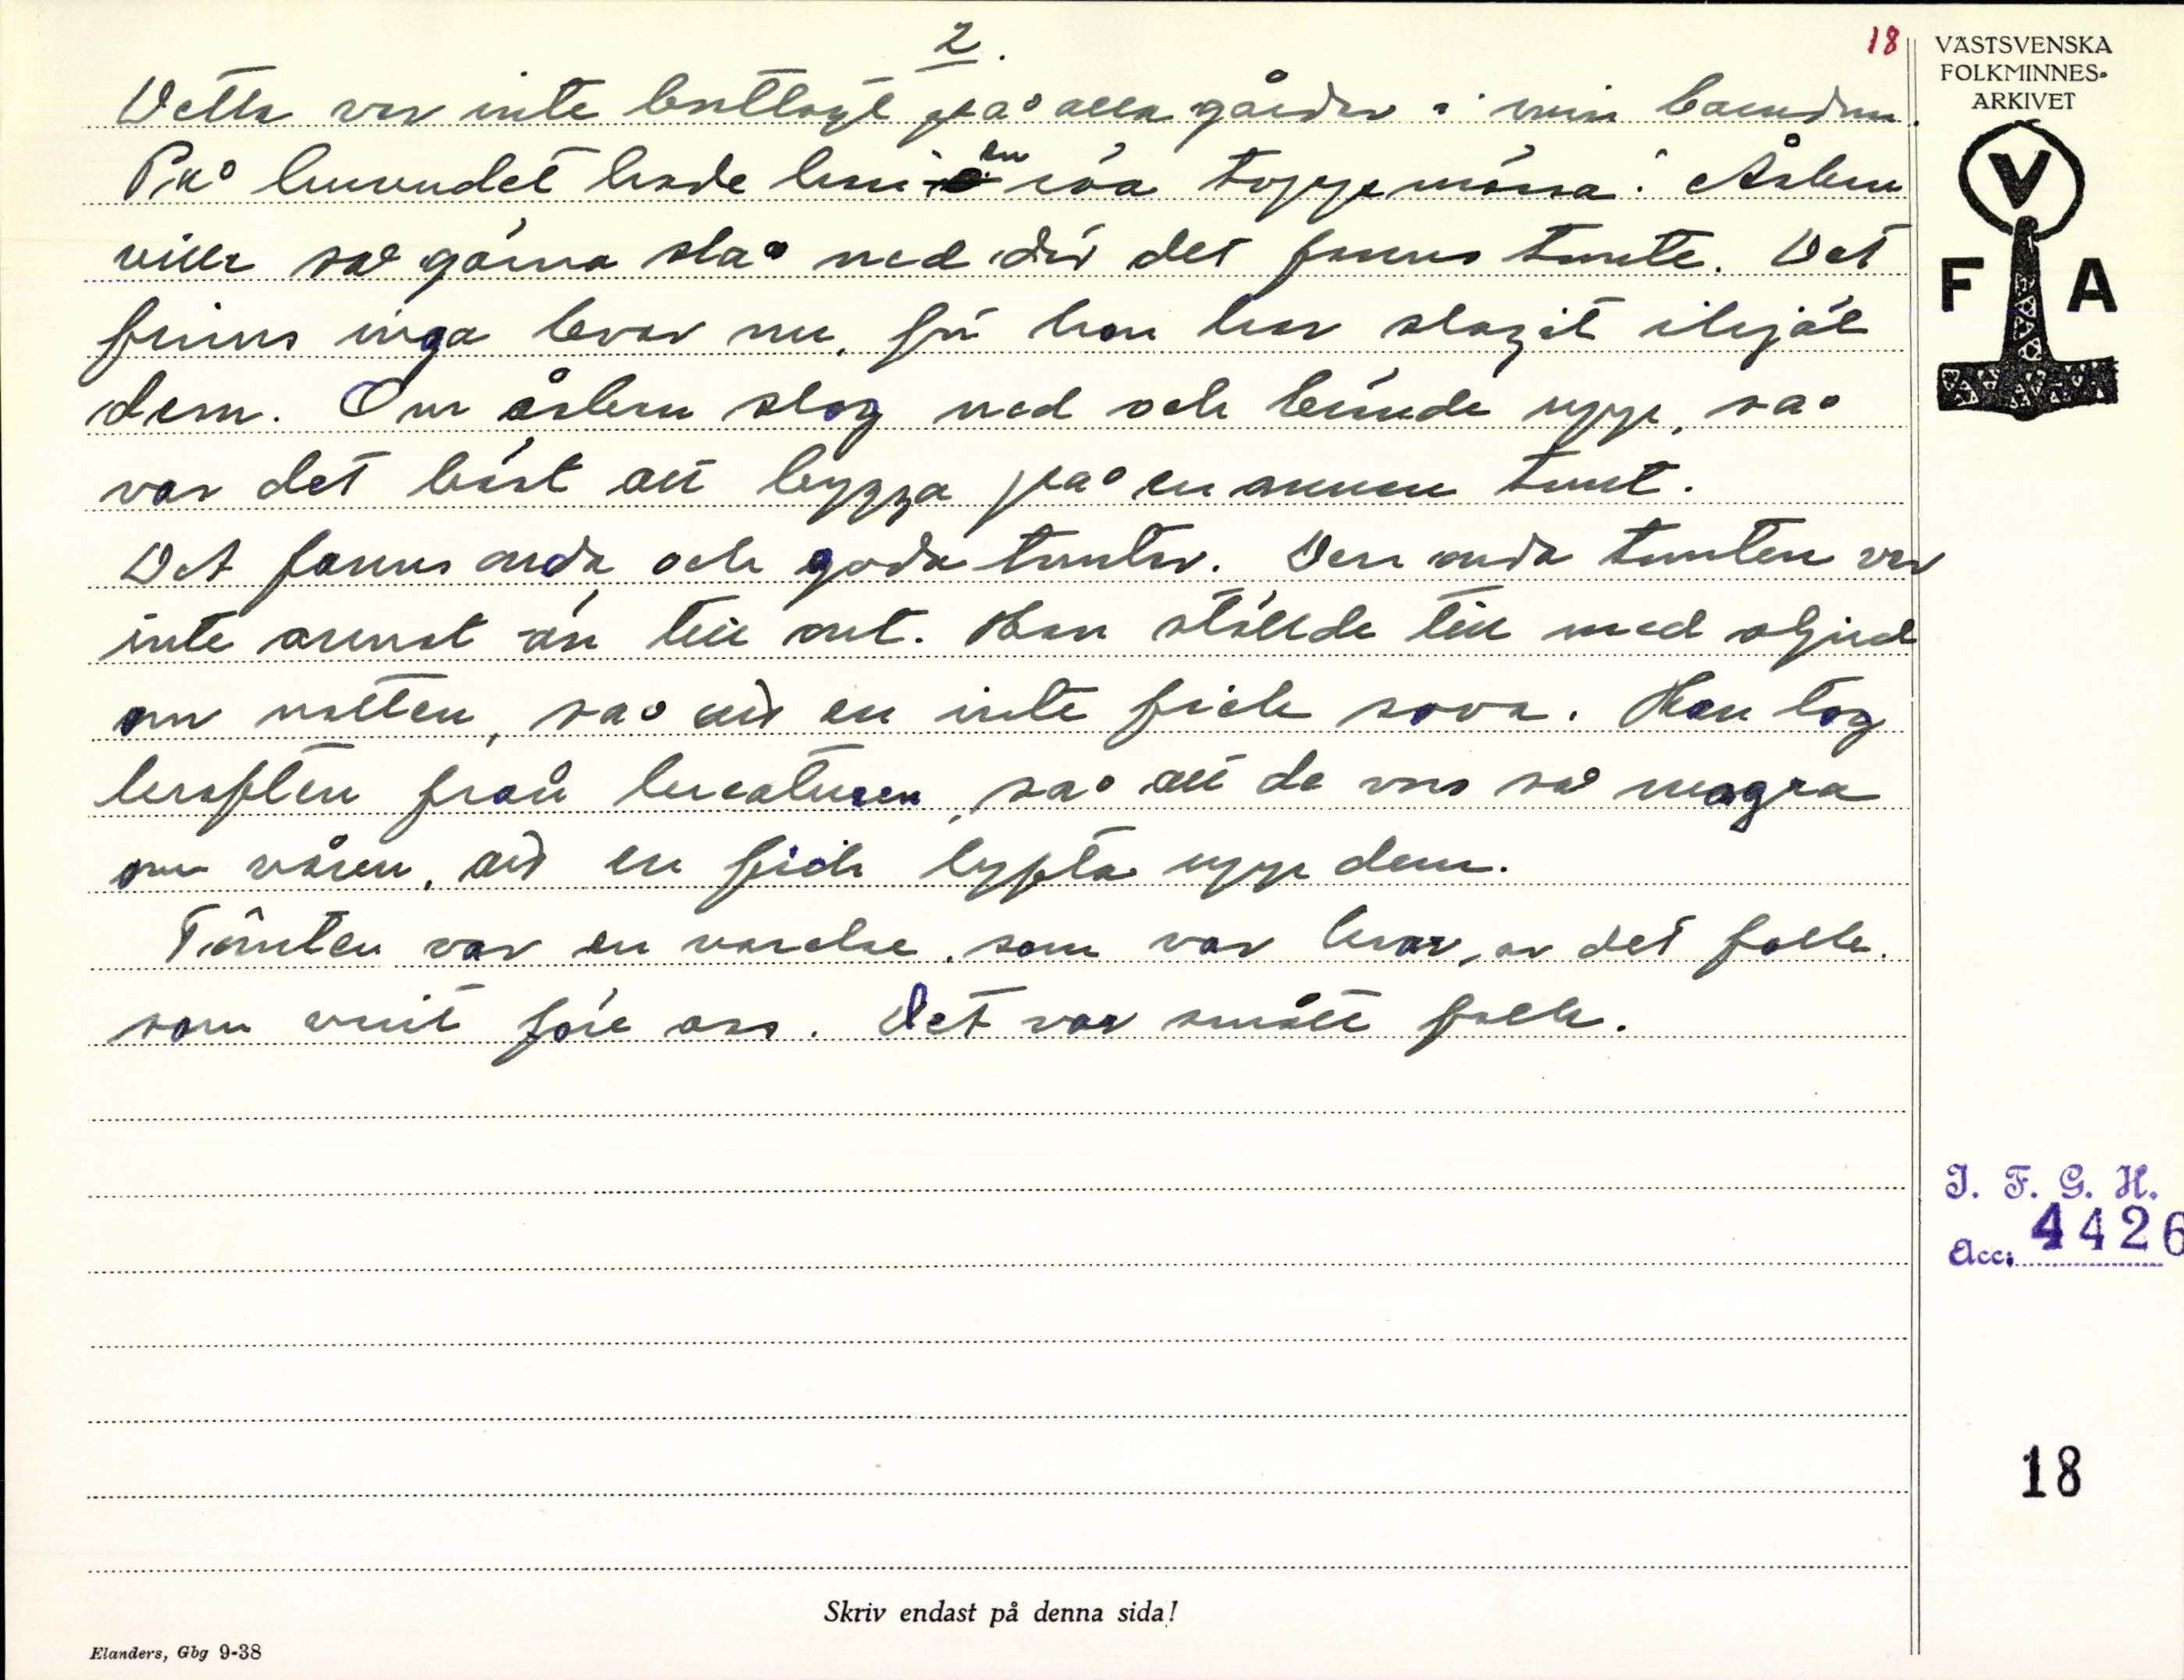 2.
18
Detta var inte brukligt på alla gårder i min barndom.
På huvudet hade han en röa toppemössa. Åsken
ville så gärna slå ned där det fanns tomte. Det
finns inga kvar nu, för han har slagit ihjäl
dem. Om åsken slog ned och brände upp, så
var det bäst att bygga på en annan tomt.
Det fanns onda och goda tomter. Den onda tomten var
inte annat än till ont. Han ställde till med oljud
om natten, så att en inte fick sova. Han tog
kraften från kreaturen, så att de vors så magra
om våren, att en fick lyfta upp dem.
Tomten var en varelse, som var kvar, av det folk.
som vait före oss. Det var smått folk.
VÄSTSVENSKA
FOLKMINNES-
ARKIVET
V
F A
I. F. G. H.
Acc. 4426
18
Skriv endast på denna sida!
Elanders, Gbg 9-38